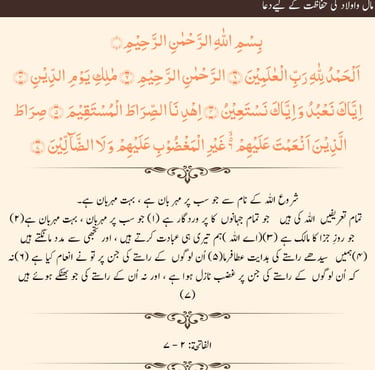 مال واولاد کی حفاظت کے لیے دعا
بِسْمِ اللهِ الرَّحْمٰنِ الرَّحِيْمِ
اَلْحَمْدُ لِلّٰهِ رَبِّ الْعٰلَمِيْنَ الرَّحْمٰنِ الرَّحِيْمِ مٰلِكِ يَوْمِ الدِّيْنِ
اِيَّاكَ نَعْبُدُ وَاِيَّاكَ نَسْتَعِيْنُ اِهْدِنَا الصِّرَاطَ الْمُسْتَقِيْمَ صِرَاطَ
الَّذِيْنَ اَنْعَمْتَ عَلَيْهِمْ غَيْرِ الْمَغْضُوْبِ عَلَيْهِمْ وَلَا الضَّآلِّيْنَ
شروع اللہ کے نام سے جو سب پر مہربان ہے ، بہت مہربان ہے۔
تمام تعریفیں اللہ کی ہیں جو تمام جہانوں کا پروردگار ہے (۱) جو سب پر مہربان ، بہت مہربان ہے(۲)
جو روزِ جزا کا مالک ہے (۳)(اے اللہ )ہم تیری ہی عبادت کرتے ہیں ، اور تجھی سے مدد مانگتے ہیں
(۴)ہمیں سیدھے راستے کی ہدایت عطافرما(۵) اُن لوگوں کے راستے کی جن پر تو نے انعام کیا ہے (۶)نہ
کہ اُن لوگوں کے راستے کی جن پر غضب نازل ہوا ہے ، اور نہ اُن کے راستے کی جو بھٹکے ہوئے ہیں
(۷)
الفاتحۃ: ۲ - ۷